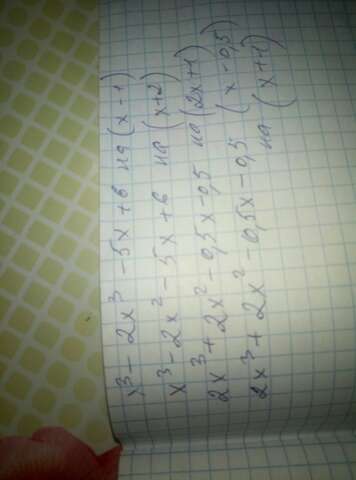 x³ - 2x³ - 5x + 6 на (x - 1)
x³ - 2x² - 5x + 6 на (x + 2)
2x³ + 2x² - 0,5x - 0,5 на (2x + 1)
2x³ + 2x² - 0,5x - 0,5 (x - 0,5)
на (x + 1)